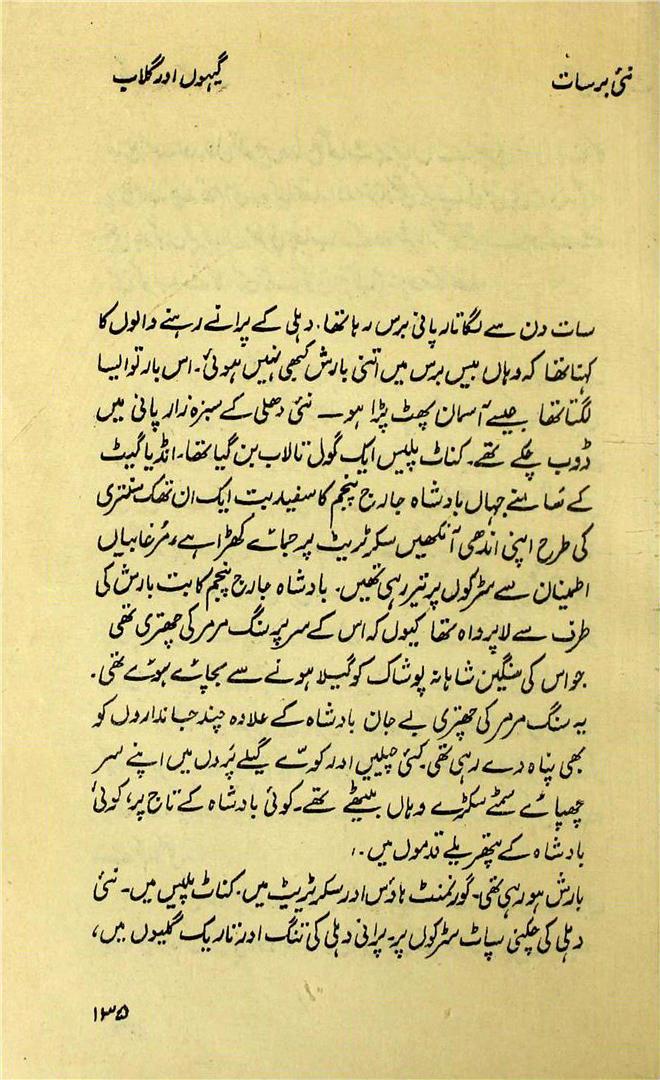 نئی برسات
گیہوں اور گلاب
سات دن سے لگاتار پانی برس رہا تھا۔ دہلی کے پرانے رہنے والوں کا
کہنا تھا کہ وہاں بیس برس میں اتنی بارش کبھی نہیں ہوئی۔ اس بار تو ایسا
لگتا تھا جیسے آسمان پھٹ پڑا ہو — نئی دھلی کے سبزہ زار پانی میں
ڈوب چکے تھے۔ کناٹ پلیس ایک گول تالاب بن گیا تھا۔ انڈیا گیٹ
کے سامنے جہاں بادشاہ جارج پنجم کا سفید بت ایک ان تھک سنتری
کی طرح اپنی اندھی آنکھیں سکرٹریٹ پر جمائے کھڑا ہے، مُرغابیاں
اطمینان سے سڑکوں پر تیر رہی تھیں۔ بادشاہ جارج پنجم کا بت بارش کی
طرف سے لاپرواہ تھا کیوں کہ اس کے سر پر سنگ مرمر کی چھتری تھی
جو اس کی سنگین شاہانہ پوشاک کو گیلا ہونے سے بچائے ہوئے تھی۔
یہ سنگ مرمر کی چھتری بے جان بادشاہ کے علاوہ چند جانداروں کو
بھی پناہ دے رہی تھی۔ کئی چیلیں اور کوّے گیلے پَروں میں اپنے سر
چھپائے سمٹے سکڑے وہاں بیٹھے تھے۔ کوئی بادشاہ کے تاج پر، کوئی
بادشاہ کے پتھریلے قدموں میں۔،
بارش ہو رہی تھی۔ گورنمنٹ ہاؤس اور سکرٹریٹ میں۔ کناٹ پلیس میں۔ نئی
دہلی کی چکنی سپاٹ سڑکوں پر۔ پرانی دہلی کی تنگ اور تاریک گلیوں میں،
۱۳۵